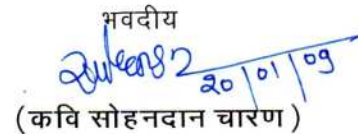 भवदीय
20/01/09
(कवि सोहनदान चारण)